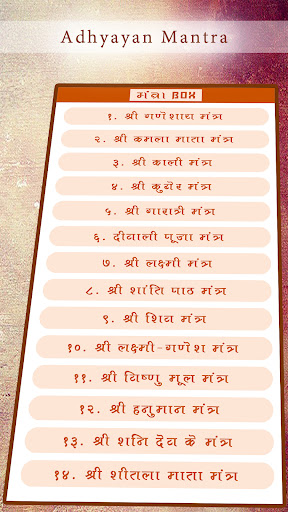 Adhyayan Mantra
मंत्रा BOX
१. श्री गणेशाय मंत्र
२. श्री कमला माता मंत्र
३. श्री काली मंत्र
४. श्री कुबेर मंत्र
५. श्री गायत्री मंत्र
६. दीवाली पूजा मंत्र
७. श्री लक्ष्मी मंत्र
८. श्री शांति पाठ मंत्र
९. श्री शिव मंत्र
१०. श्री लक्ष्मी-गणेश मंत्र
११. श्री विष्णु मूल मंत्र
१२. श्री हनुमान मंत्र
१३. श्री शनि देव के मंत्र
१४. श्री शीतला माता मंत्र